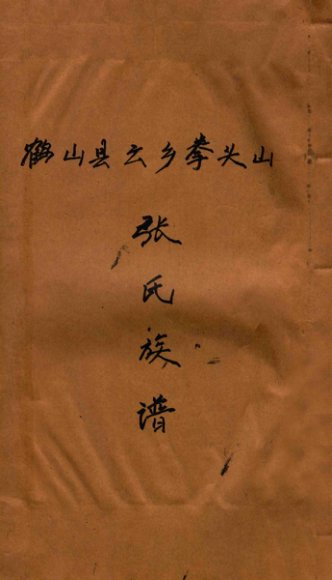 鹤山县云乡拳头山
张氏族谱